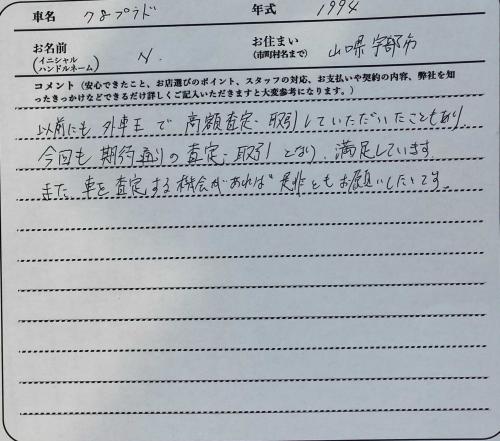 車名 78プラド 年式 1994
お名前 (イニシャル ハンドルネーム) N. お住まい (市町村名まで) 山口県宇部市
コメント（安心できたこと、お店選びのポイント、スタッフの対応、お支払いや契約の内容、弊社を知
ったきっかけなどできるだけ詳しくご記入いただきますと大変参考になります。）
以前にも 外車王 で 高額査定・取引していただいたこともあり、
今回も 期待通りの 査定・取引 となり、満足しています
また 車を 査定する 機会があれば 是非ともお願いしたいです。